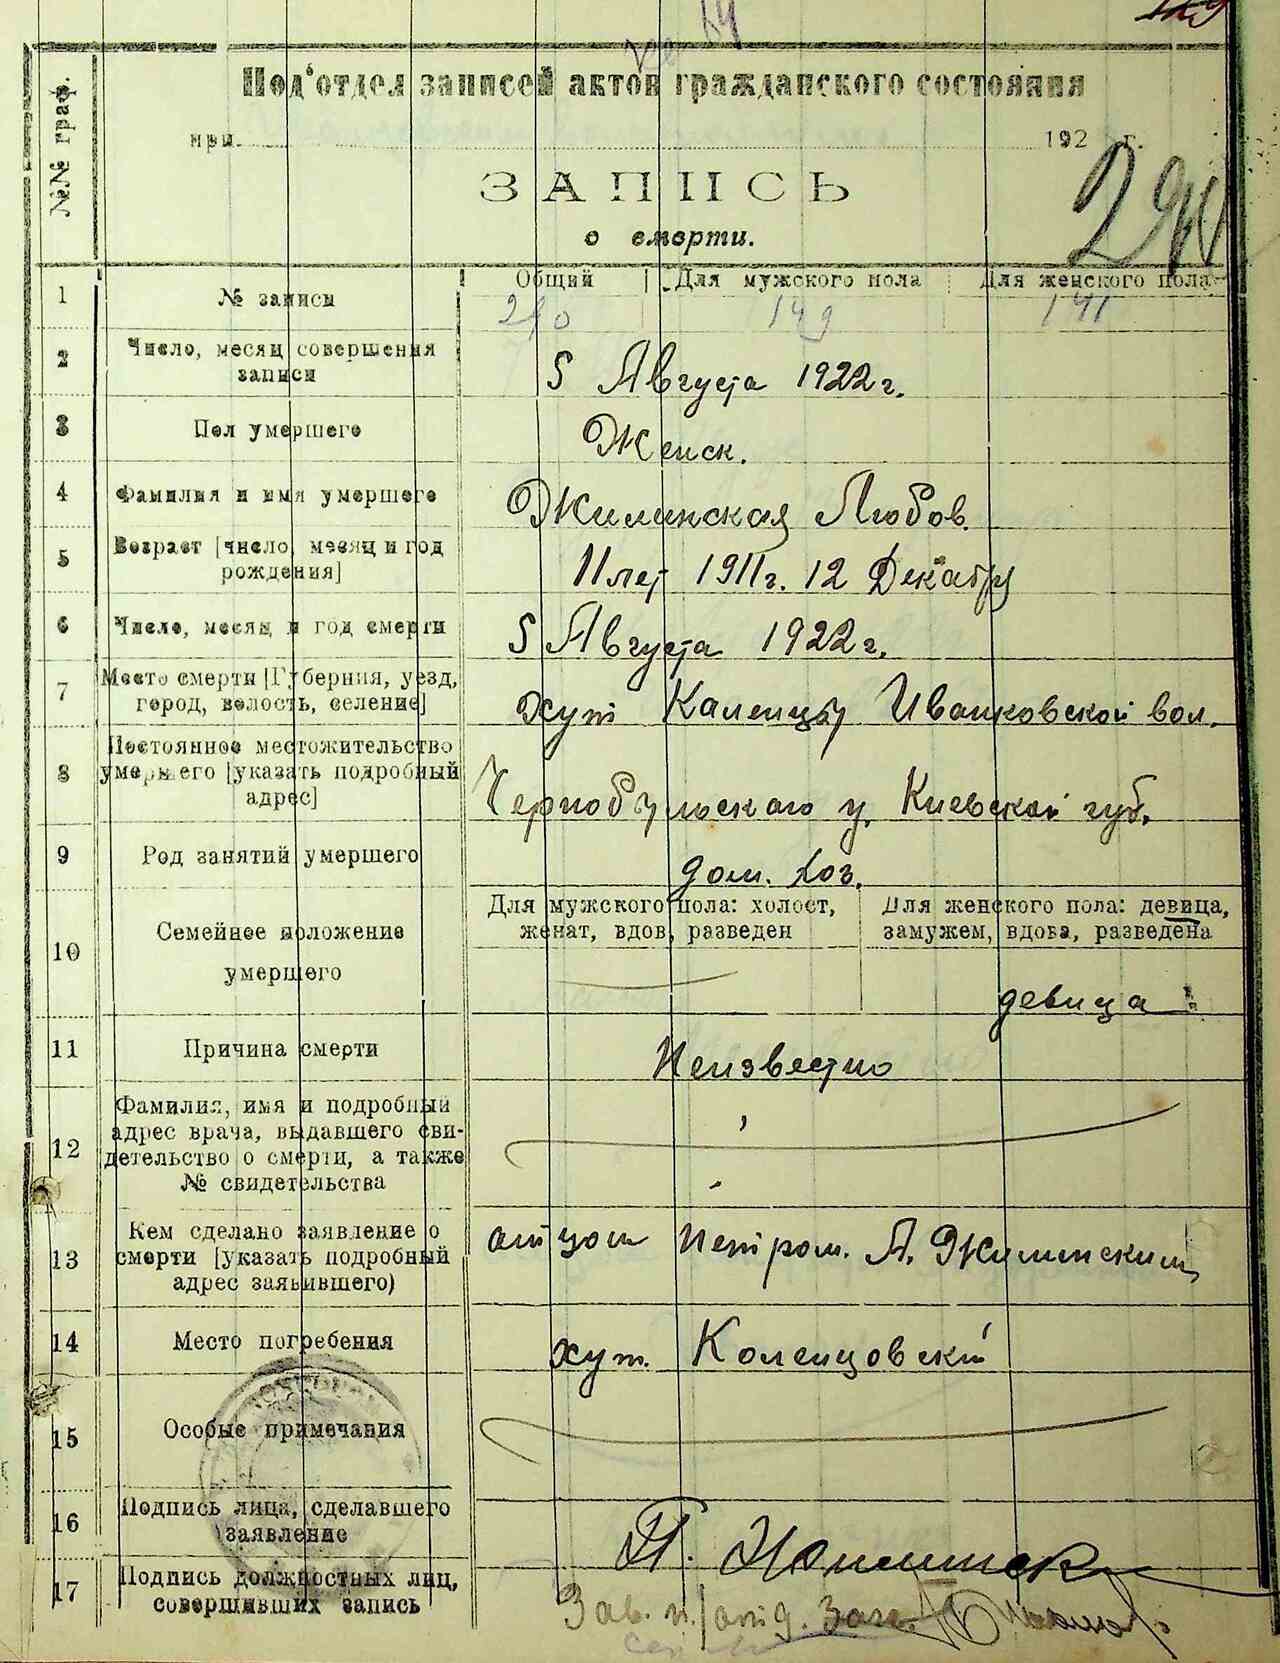 Под'отдел записей актов гражданского состояния
при 192 г.
№№ граф.
ЗАПИСЬ
о смерти.
1 № записи Общий Для мужского пола Для женского пола
149 141
2 Число, месяц совершения записи
5 Августа 1922 г.
3 Пол умершего
Женск.
4 Фамилия и имя умершего
Жилинская Любов.
5 Возраст [число, месяц и год рождения]
11 лет 1911 г. 12 Декабря
6 Число, месяц и год смерти
5 Августа 1922 г.
7 Место смерти [Губерния, уезд, город, волость, селение]
хут Каленцы Иванковской вол.
8 Постоянное местожительство умершего [указать подробный адрес]
Чернобыльского у. Киевской губ.
9 Род занятий умершего
дом. хоз.
10 Семейное положение умершего
Для мужского пола: холост, женат, вдов, разведен
Для женского пола: девица, замужем, вдова, разведена
девица
11 Причина смерти
Неизвестно
12 Фамилия, имя и подробный адрес врача, выдавшего свидетельство о смерти, а также № свидетельства
13 Кем сделано заявление о смерти [указать подробный адрес заявившего)
отцом Петром. А. Жилинским
14 Место погребения
хут. Коленцовский
15 Особые примечания
16 Подпись лица, сделавшего заявление
П.
17 Подпись должностных лиц, совершивших запись
Зав. п/отд. Загс.